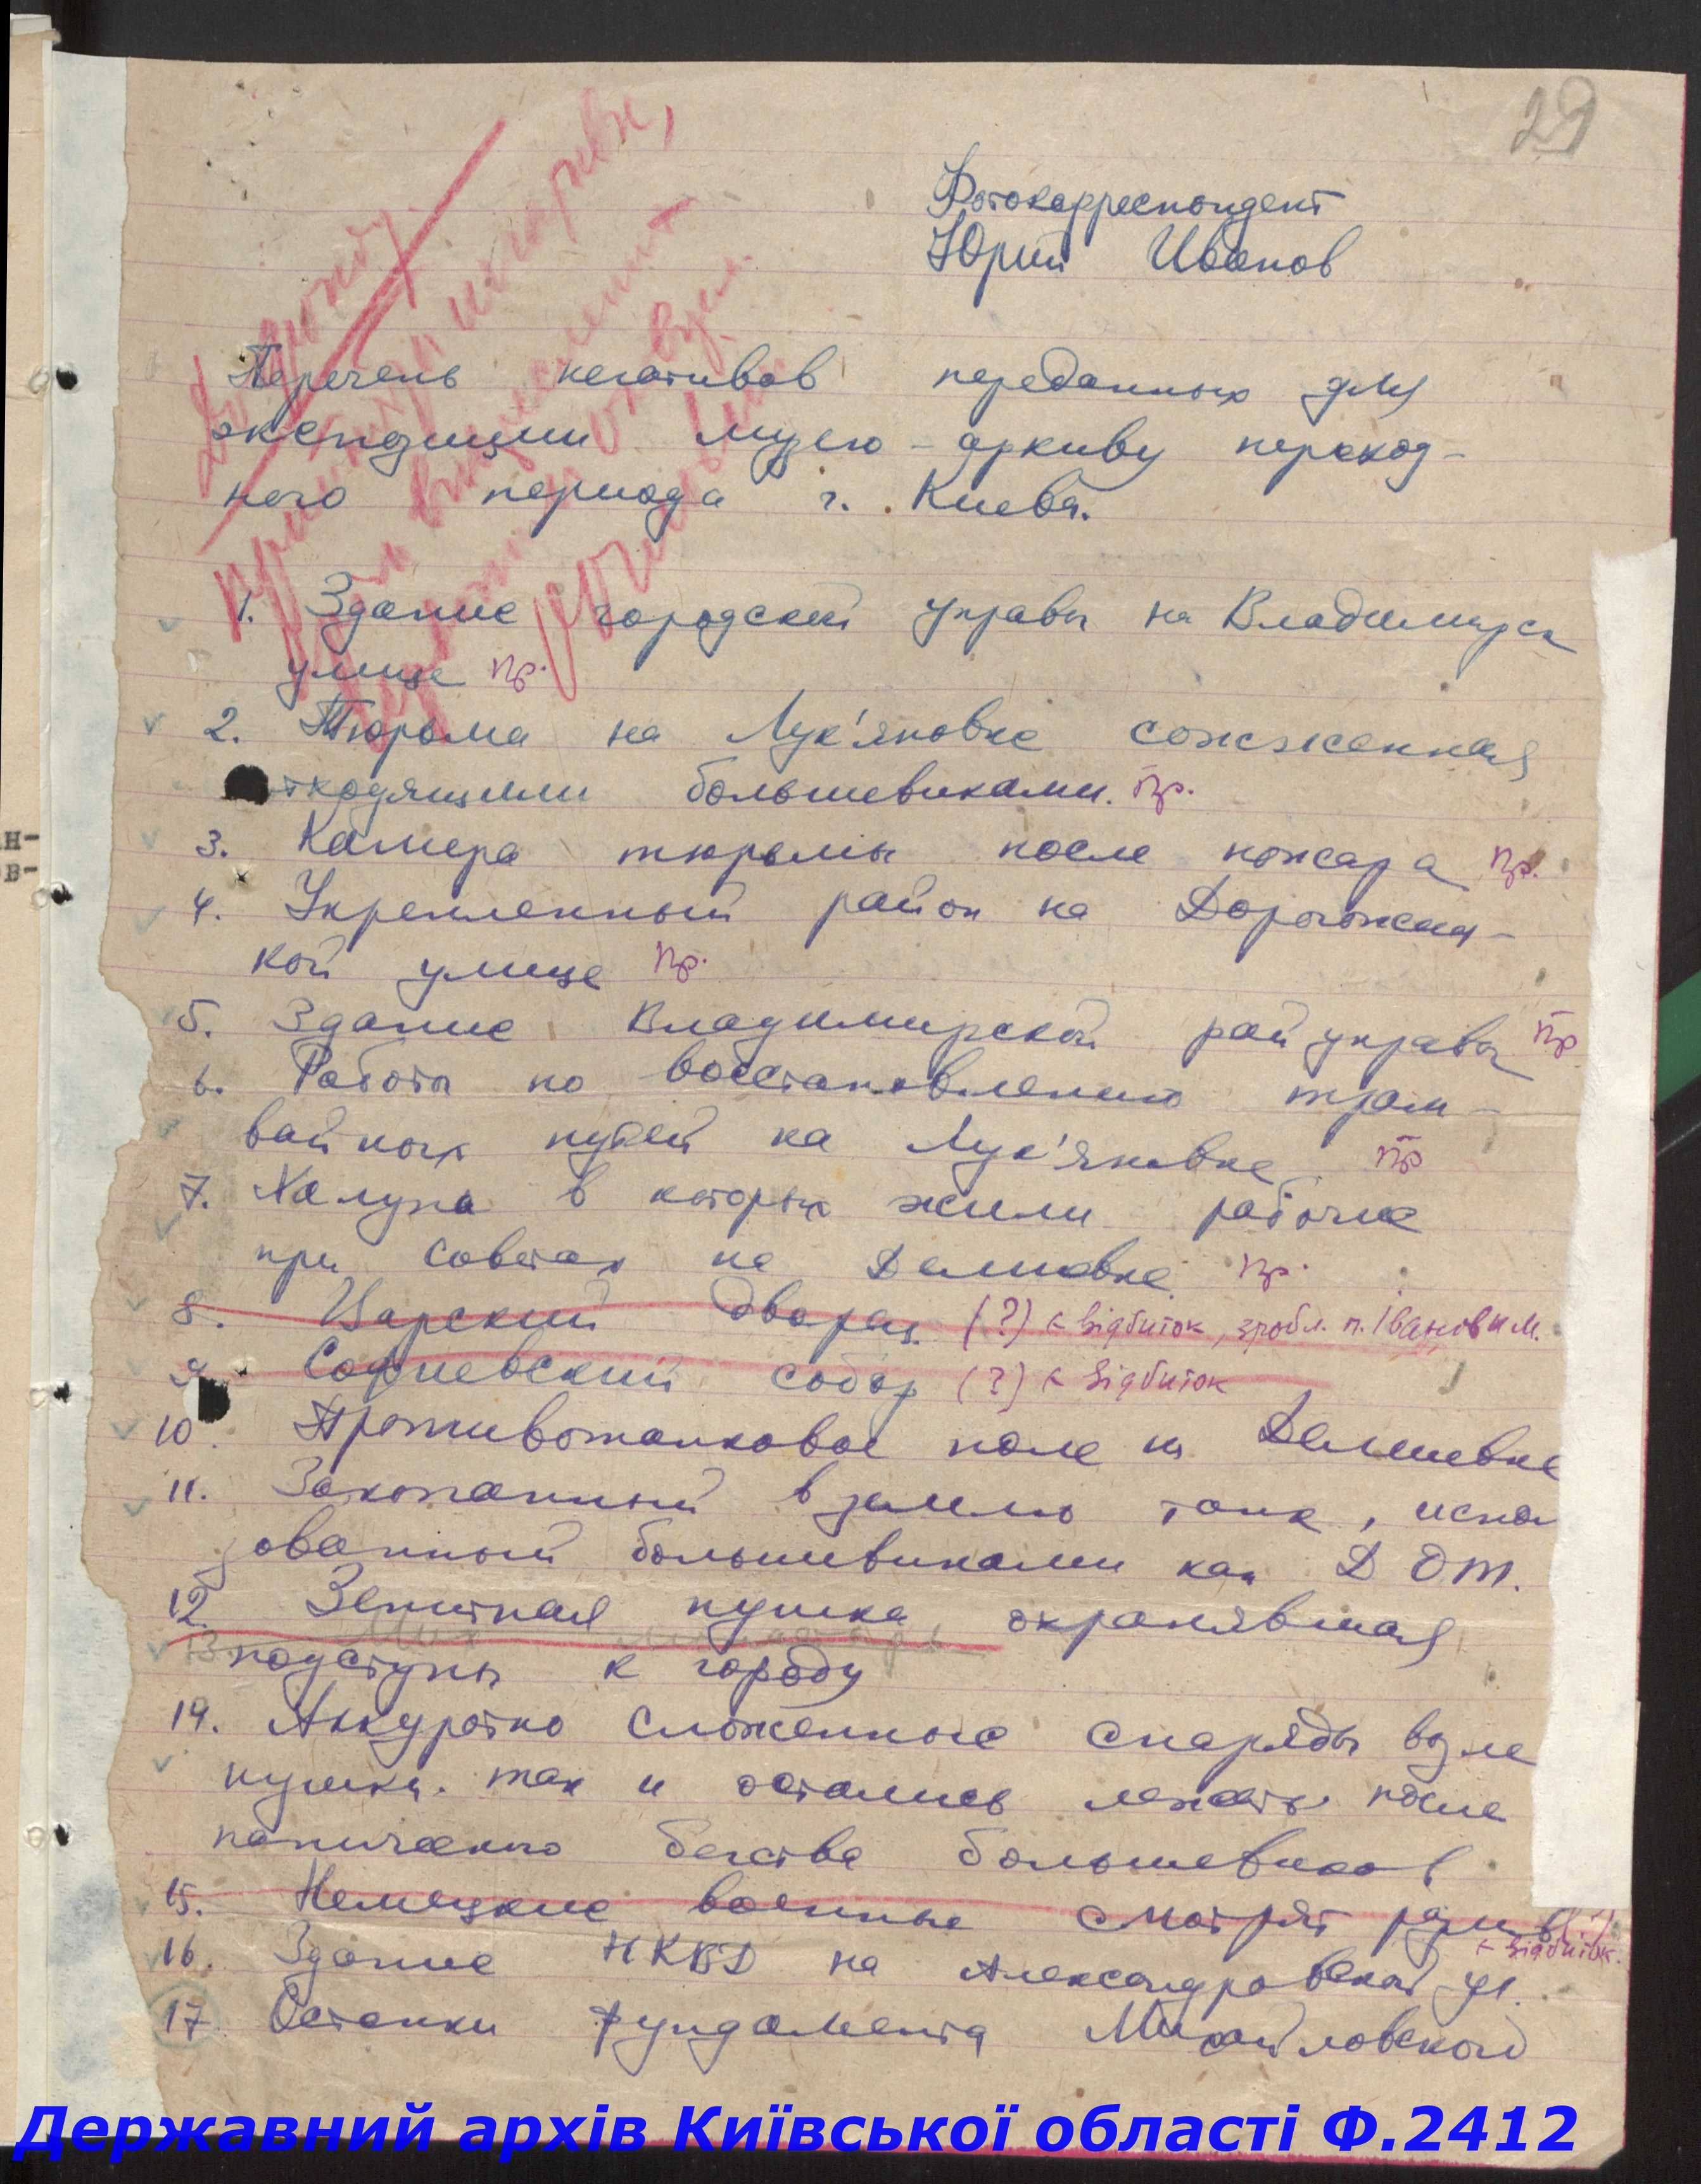 29
Фотокорреспондент
Юрий Иванов
Перечень негативов переданных для
экспозиции музею-архиву переход-
ного периода г. Киева.
1. Здание городской управы на Владимирск
улице пр.
2. Тюрьма на Лук'яновке сожженная
тходящими большевиками. пр.
3. Камера тюрьмы после пожара пр.
4. Укрепленный район на Дорогожиц-
кой улице пр.
5. Здание Владимирской райуправы пр
6. Работы по восстановлению трам-
вайных путей на Лук'яновке пр
7. Халупа в которых жили рабочие
при советах на Демиевке пр.
8. Царский дворец (?) < відбиток, зробл. п. Івановим.
9 Софиевский собор (?) < відбиток
10. Противотанковое поле на Демиевке
11. Закопанный в землю танк, испол
зованный большевиками как ДОТ.
12 Зенитная пушка охранявшая
13 подступы к городу
14. Аккуратно сложенные снаряды возле
пушки. так и остались лежать после
панического бегства большевиков.
15. Немецкие военные смотрят (?)
< відбиток.
16. Здание НКВД на Александровской ул.
17. Останки фундамента Михайловского
н-
в-
Державний архів Київської області Ф.2412